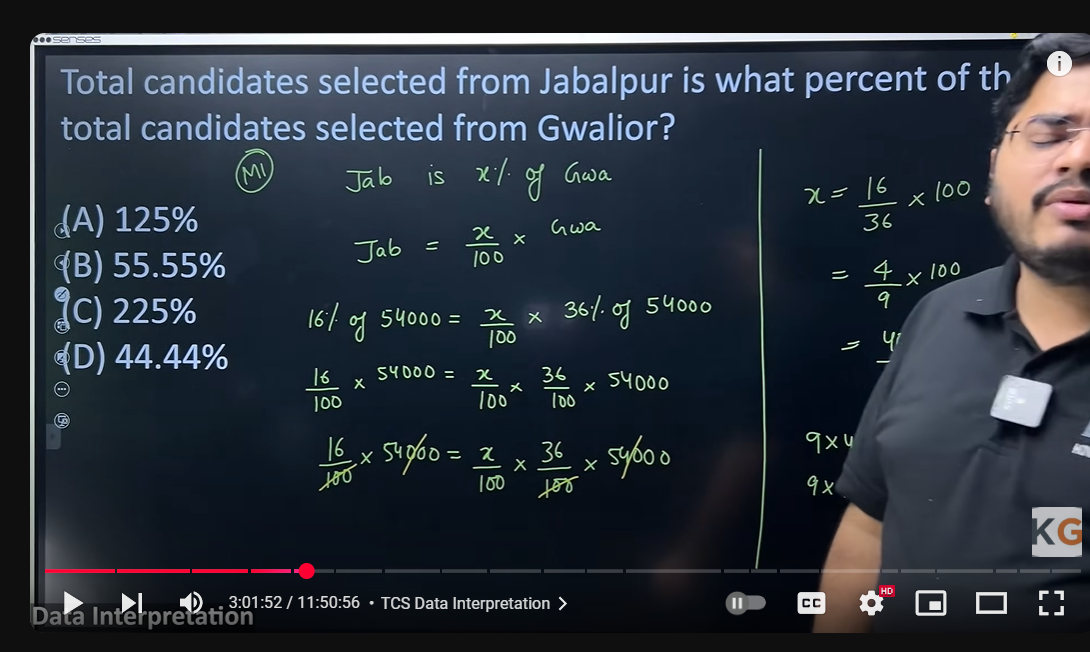 senses
Total candidates selected from Jabalpur is what percent of th
total candidates selected from Gwalior?
M1
Jab is x% of Gwa
(A) 125%
(B) 55.55%
(C) 225%
(D) 44.44%
Jab = x/100 × Gwa
16% of 54000 = x/100 × 36% of 54000
16/100 × 54000 = x/100 × 36/100 × 54000
16/100 × 54000 = x/100 × 36/100 × 54000
x = 16/36 × 100
= 4/9 × 100
= 4
9×4
9×
KG
3:01:52 / 11:50:56 • TCS Data Interpretation >
CC
HD
Data Interpretation